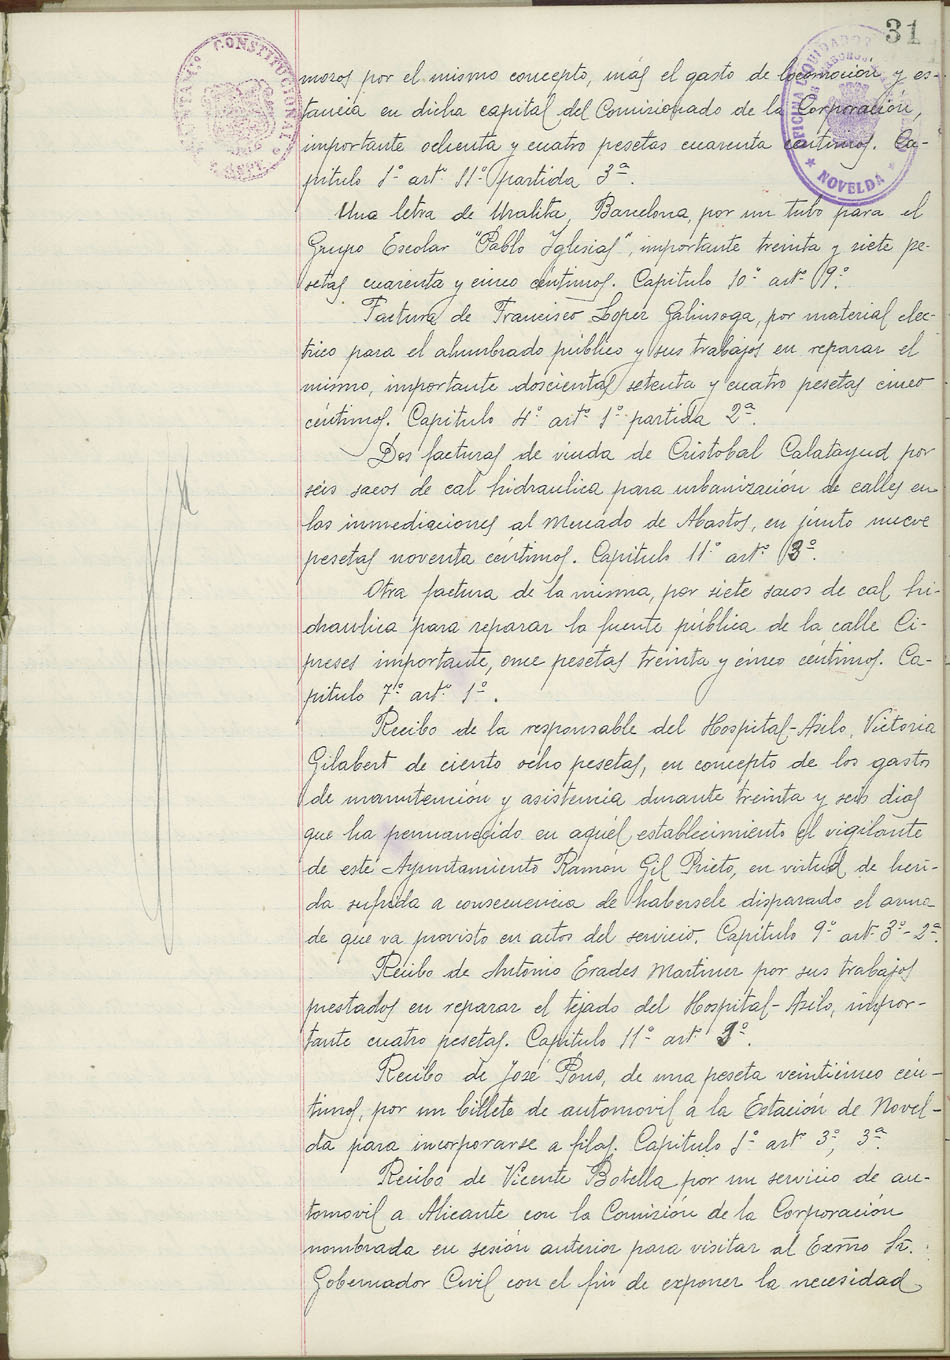 31
AYUNTAMTº CONSTITUCIONAL
OFICINA LIQUIDADORA
NOVELDA
mozos por el mismo concepto, más el gasto de locomoción y es-
tancia en dicha capital del Comisionado de la Corporación,
importante ochenta y cuatro pesetas cuarenta centimos. Ca-
pitulo 1º artº 11º partida 3ª.
Una letra de Uralita, Barcelona, por un tubo para el
Grupo Escolar "Pablo Iglesias", importante treinta y siete pe-
setas cuarenta y cinco céntimos. Capitulo 10º artº 9º.
Factura de Francisco Lopez Galinsoga, por material elec-
trico para el alumbrado público y sus trabajos en reparar el
mismo, importante doscientas setenta y cuatro pesetas cinco
céntimos. Capitulo 4º artº 1º partida 2ª.
Dos facturas de viuda de Cristobal Calatayud por
seis sacos de cal hidraulica para urbanización de calles en
las inmediaciones al Mercado de Abastos, en junto nueve
pesetas noventa céntimos. Capitulo 11º artº 3º.
Otra factura de la misma, por siete sacos de cal hi-
draulica para reparar la fuente pública de la calle Ci-
preses importante, once pesetas treinta y cinco céntimos. Ca-
pitulo 7º artº 1º.
Recibo de la responsable del Hospital-Asilo, Victoria
Gilabert de ciento ocho pesetas, en concepto de los gastos
de manutención y asistencia durante treinta y seis dias
que ha permanecido en aquél establecimiento el vigilante
de este Ayuntamiento Ramon Gil Prieto, en virtud de heri-
da sufrida a consecuencia de habersele disparado el arma
de que va provisto en actos del servicio. Capitulo 9º artº 3º-2ª.
Recibo de Antonio Erades Martinez por sus trabajos
prestados en reparar el tejado del Hospital-Asilo, impor-
tante cuatro pesetas. Capitulo 11º artº 3º.
Recibo de José Pons, de una peseta veinticinco cén-
timos, por un billete de automovil a la Estación de Novel-
da para incorporarse a filas. Capitulo 1º artº 3º, 3ª.
Recibo de Vicente Botella por un servicio de au-
tomovil a Alicante con la Comisión de la Corporación
nombrada en sesión anterior para visitar al Exmo Sr.
Gobernador Civil con el fin de exponer la necesidad